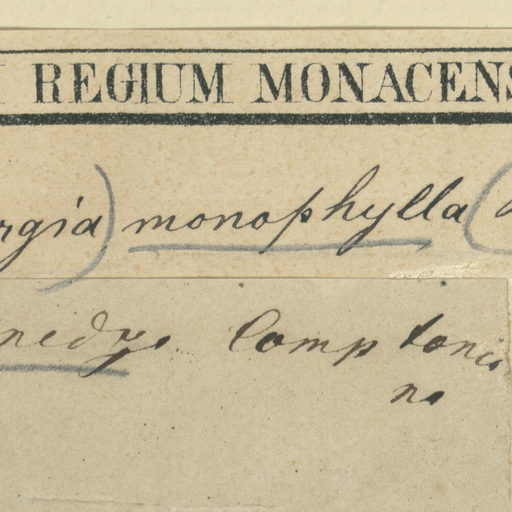 REGIUM MONACENS
rgia) monophylla (
nedya Comptonia
na